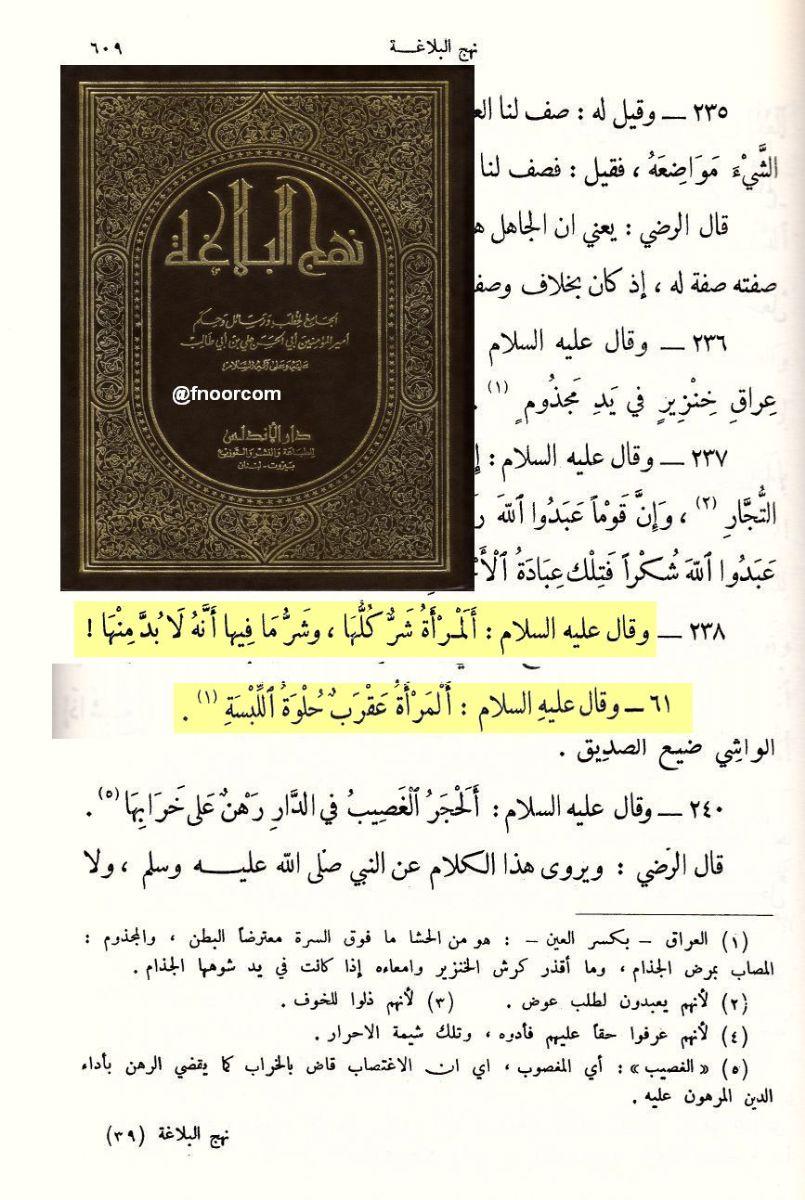 نهج البلاغـــة ٦٠٩
٢٣٥ — وقيل له : صف لنا
الشَّيْءَ مَوَاضِعَهُ ، فقيل : فصف لنا
قال الرضي : يعني ان الجاهل
صفته صفة له ، إذ كان بخلاف
٢٣٦ — وقال عليه السلام
عِراقِ خِنْزِيرٍ في يَدِ مَجْذُومٍ (١) .
٢٣٧ — وقال عليه السلام :
التُّجَّارِ (٢) ، وَإِنَّ قَوْماً عَبَدُوا اللهَ
عَبَدُوا اللهَ شُكْراً فَتِلْكَ عِبَادَةُ
نهج البلاغة
الجامع لخطب ورسائل وحكم
أمير المؤمنين أبي الحسن علي بن أبي طالب
عليه وعلى آله السلام
@fnoorcom
دار الأندلس
للطباعة والنشر والتوزيع
بيروت - لبنان
٢٣٨ — وقال عليه السلام : أَلَمْرْأَةُ شَرٌّ كُلُّهَا ، وشَرُّ مَا فِيها أَنَّهُ لَا بُدَّ مِنْهَا !
٦١ — وقال عليهِ السلام : أَلْمَرْأَةُ عَقْرَبٌ حُلْوَةُ اللِّبْسَةِ (١) .
الواشِي ضيع الصديق .
٢٤٠ — وقال عليه السلام : أَلْحَجَرُ الْغَصِيبُ في الدَّارِ رَهْنٌ عَلى خَرَابِهَا (٥) .
قال الرّضي : ويروى هذا الكلام عن النبي صلّى الله عليـــه وسلم ، ولا
(١) العراق – بكسر العين – : هو من الحشا ما فوق السرة معترضاً البطن ، والمجذوم :
المصاب بمرض الجذام ، وما أقذر كرش الخنزير وامعاءه إذا كانت في يد شوهها الجذام .
(٢) لأنهم يعبدون لطلب عوض . (٣) لأنهم ذلوا للخوف .
(٤) لأنهم عرفوا حقاً عليهم فأدوه ، وتلك شيمة الاحرار .
(٥) « الغصيب » : أي المغصوب ، اي ان الاغتصاب قاض بالخراب كما يقضي الرهن بأداء
الدين المرهون عليه .
نهج البلاغة (٣٩)